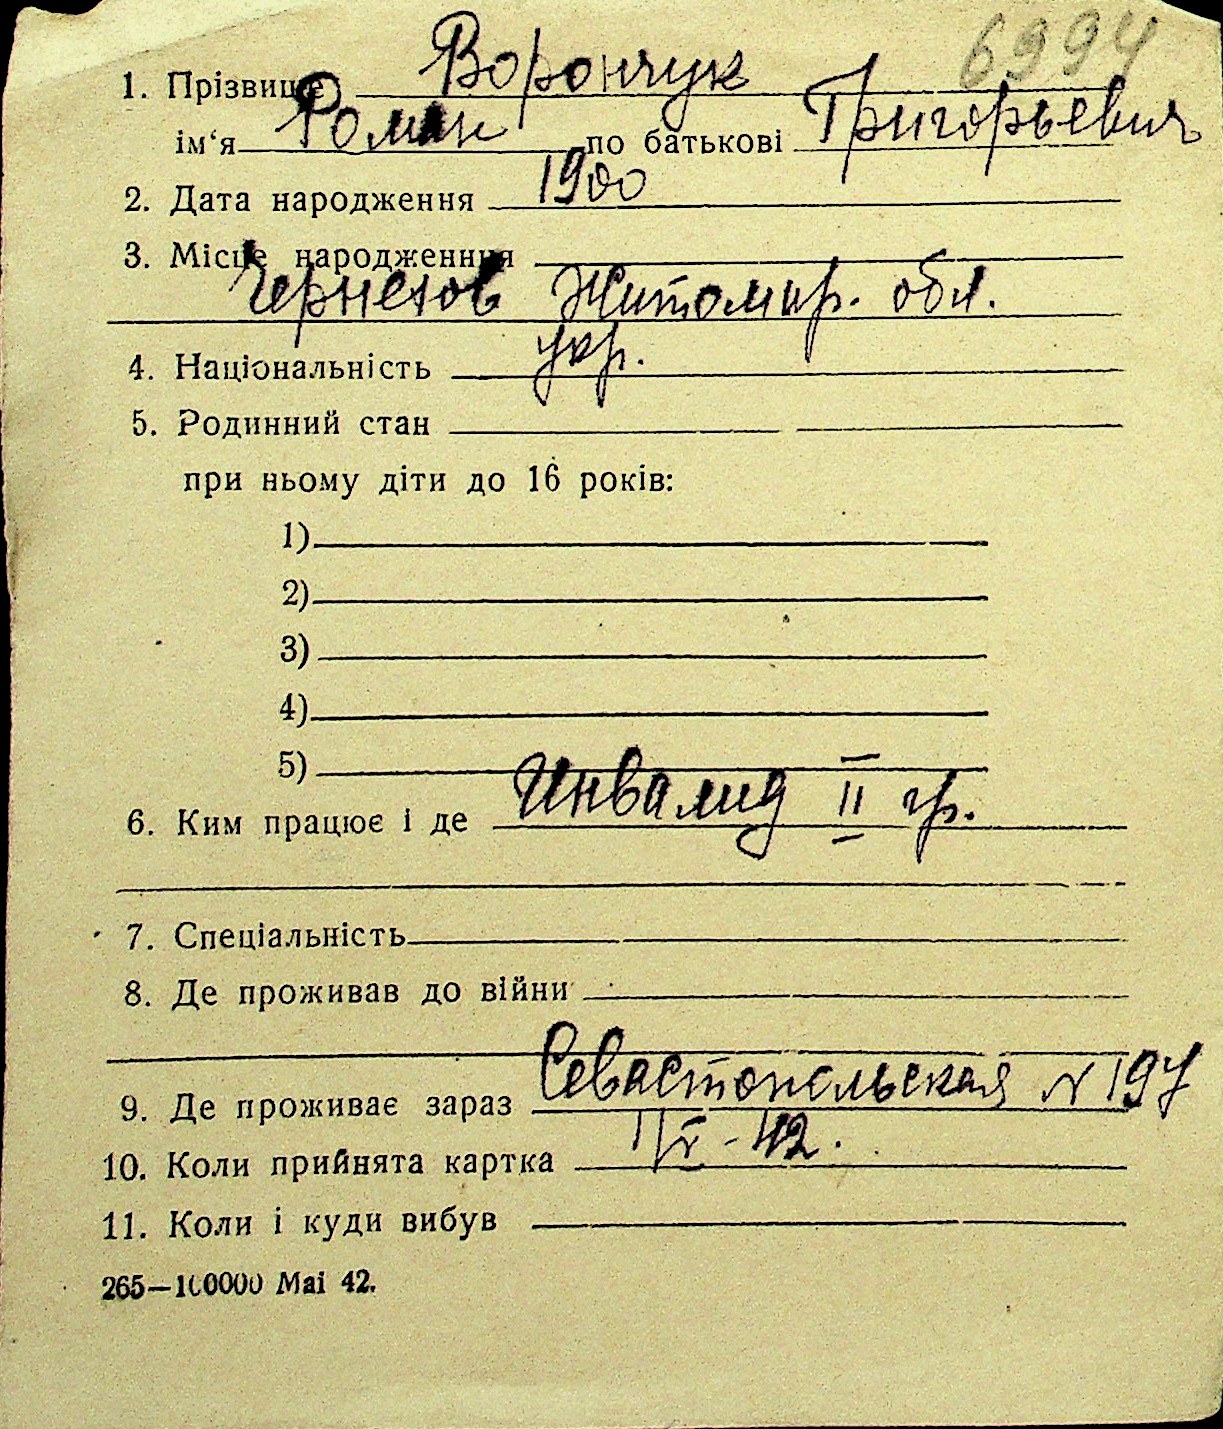 6994
1. Прізвище Ворончук
ім‘я Роман по батькові Григорьевич
2. Дата народження 1900
3. Місце народженння
Житомир. обл.
4. Національність укр.
5. Родинний стан
при ньому діти до 16 років:
1)
2)
3)
4)
5)
6. Ким працює і де Инвалид II гр.
7. Спеціальність
8. Де проживав до війни
9. Де проживає зараз Севастопольская № 197
10. Коли прийнята картка - 42.
11. Коли і куди вибув
265—100000 Mai 42.